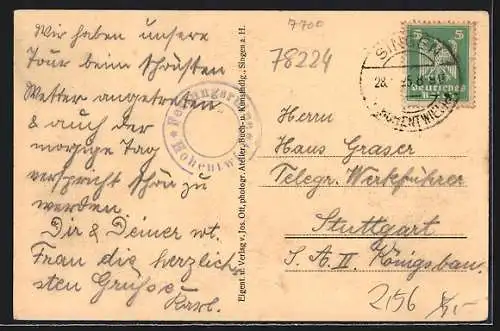 Wir haben unsere
Tour beim schönsten
Wetter angetreten
& auch der
morgige Tag
verspricht schön zu
werden
Dir & Deiner wt.
Frau die herzlich-
sten Grüsse
Karl.
Hohentwiel
Eigent. u. Verlag v. Jos. Ott, photogr. Atelier, Buch- u. Kunsthdlg., Singen a. H.
7700
78224
SINGEN
28.
(HOHENTWIEL)
5 5
Deutsches Reich
Herrn
Hans Graser
Telegr. Werkführer
Stuttgart
S. A. II. Königsbau.
2156